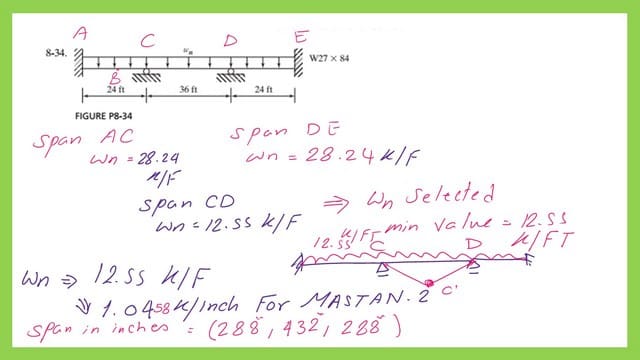 A C D E
8-34. wn W27 × 84
B
24 ft 36 ft 24 ft
FIGURE P8-34
Span AC Span DE
wn = 28.24 K/F wn = 28.24 K/F
Span CD ⇒ Wn Selected
wn = 12.55 K/F min value = 12.55 K/FT
12.55 K/FT C D
Wn ⇒ 12.55 K/F C'
⇓ 1.0458 K/inch For MASTAN.2
Span in inches = (288", 432", 288")